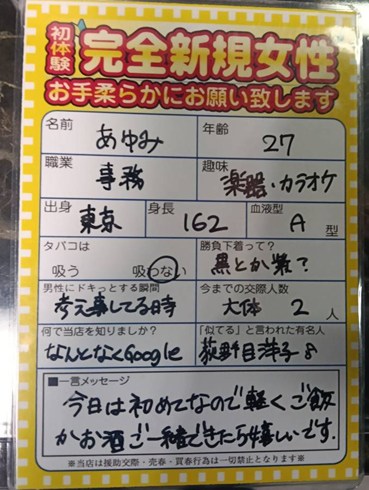 初体験 完全新規女性
お手柔らかにお願い致します
名前 あゆみ 年齢 27
職業 事務 趣味 楽器・カラオケ
出身 東京 身長 162 血液型 A 型
タバコは 吸う 吸わない 勝負下着って? 黒とか紫?
男性にドキっとする瞬間 考え事してる時 今までの交際人数 大体 2 人
何で当店を知りましたか? なんとなくGoogle 「似てる」と言われた有名人 荻野目洋子
■一言メッセージ
今日は初めてなので軽くご飯
かお酒ご一緒できたら嬉しいです.
※当店は援助交際・売春・買春行為は一切禁止となります※